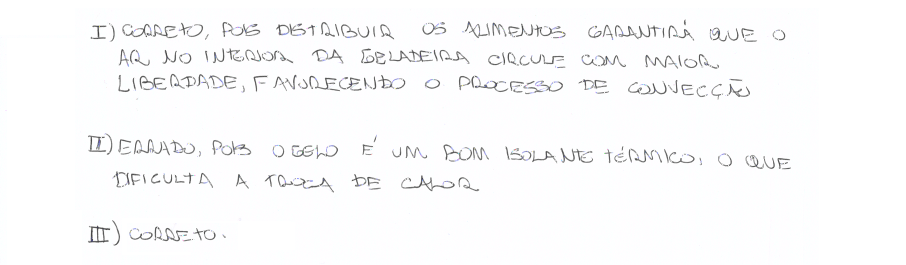 I) CORRETO, POIS DISTRIBUIR OS ALIMENTOS GARANTIRÁ QUE O
AR NO INTERIOR DA GELADEIRA CIRCULE COM MAIOR
LIBERDADE, FAVORECENDO O PROCESSO DE CONVECÇÃO
II) ERRADO, POIS O GELO É UM BOM ISOLANTE TÉRMICO, O QUE
DIFICULTA A TROCA DE CALOR
III) CORRETO.